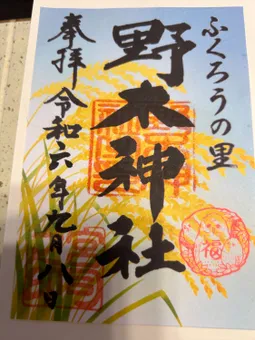 ふくろうの里
野木神社
奉拝
令和六年九月八日
福